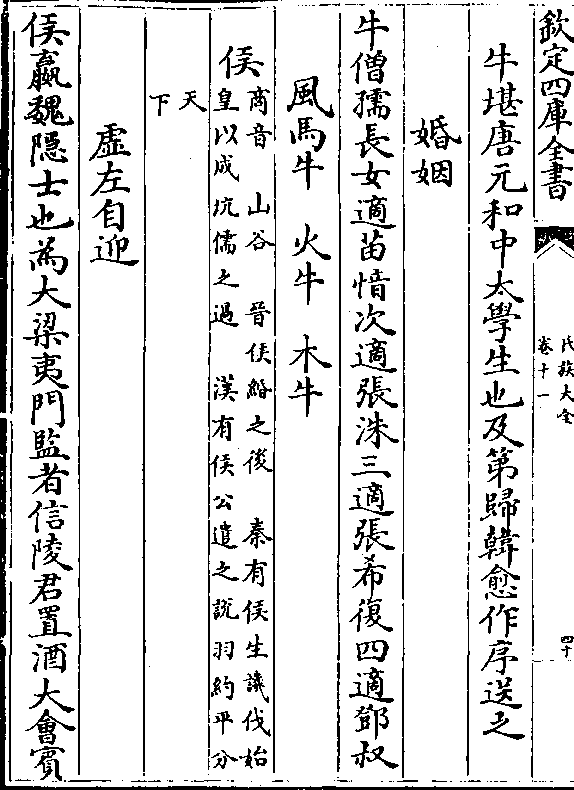 欽定四庫全書
氏族大全
卷十一
四十
牛堪唐元和中太學生也及第歸韓愈作序送之
婚姻
牛僧孺長女適苗愔次適張洙三適張希復四適鄧叔
風馬牛　火牛　木牛
侯
商音　山谷　晉侯緡之後　秦有侯生議伐始
皇以成坑儒之過　漢有侯公遣之說羽約平分
天
下
虛左自迎
侯嬴魏隱士也為大梁夷門監者信陵君置酒大會賓